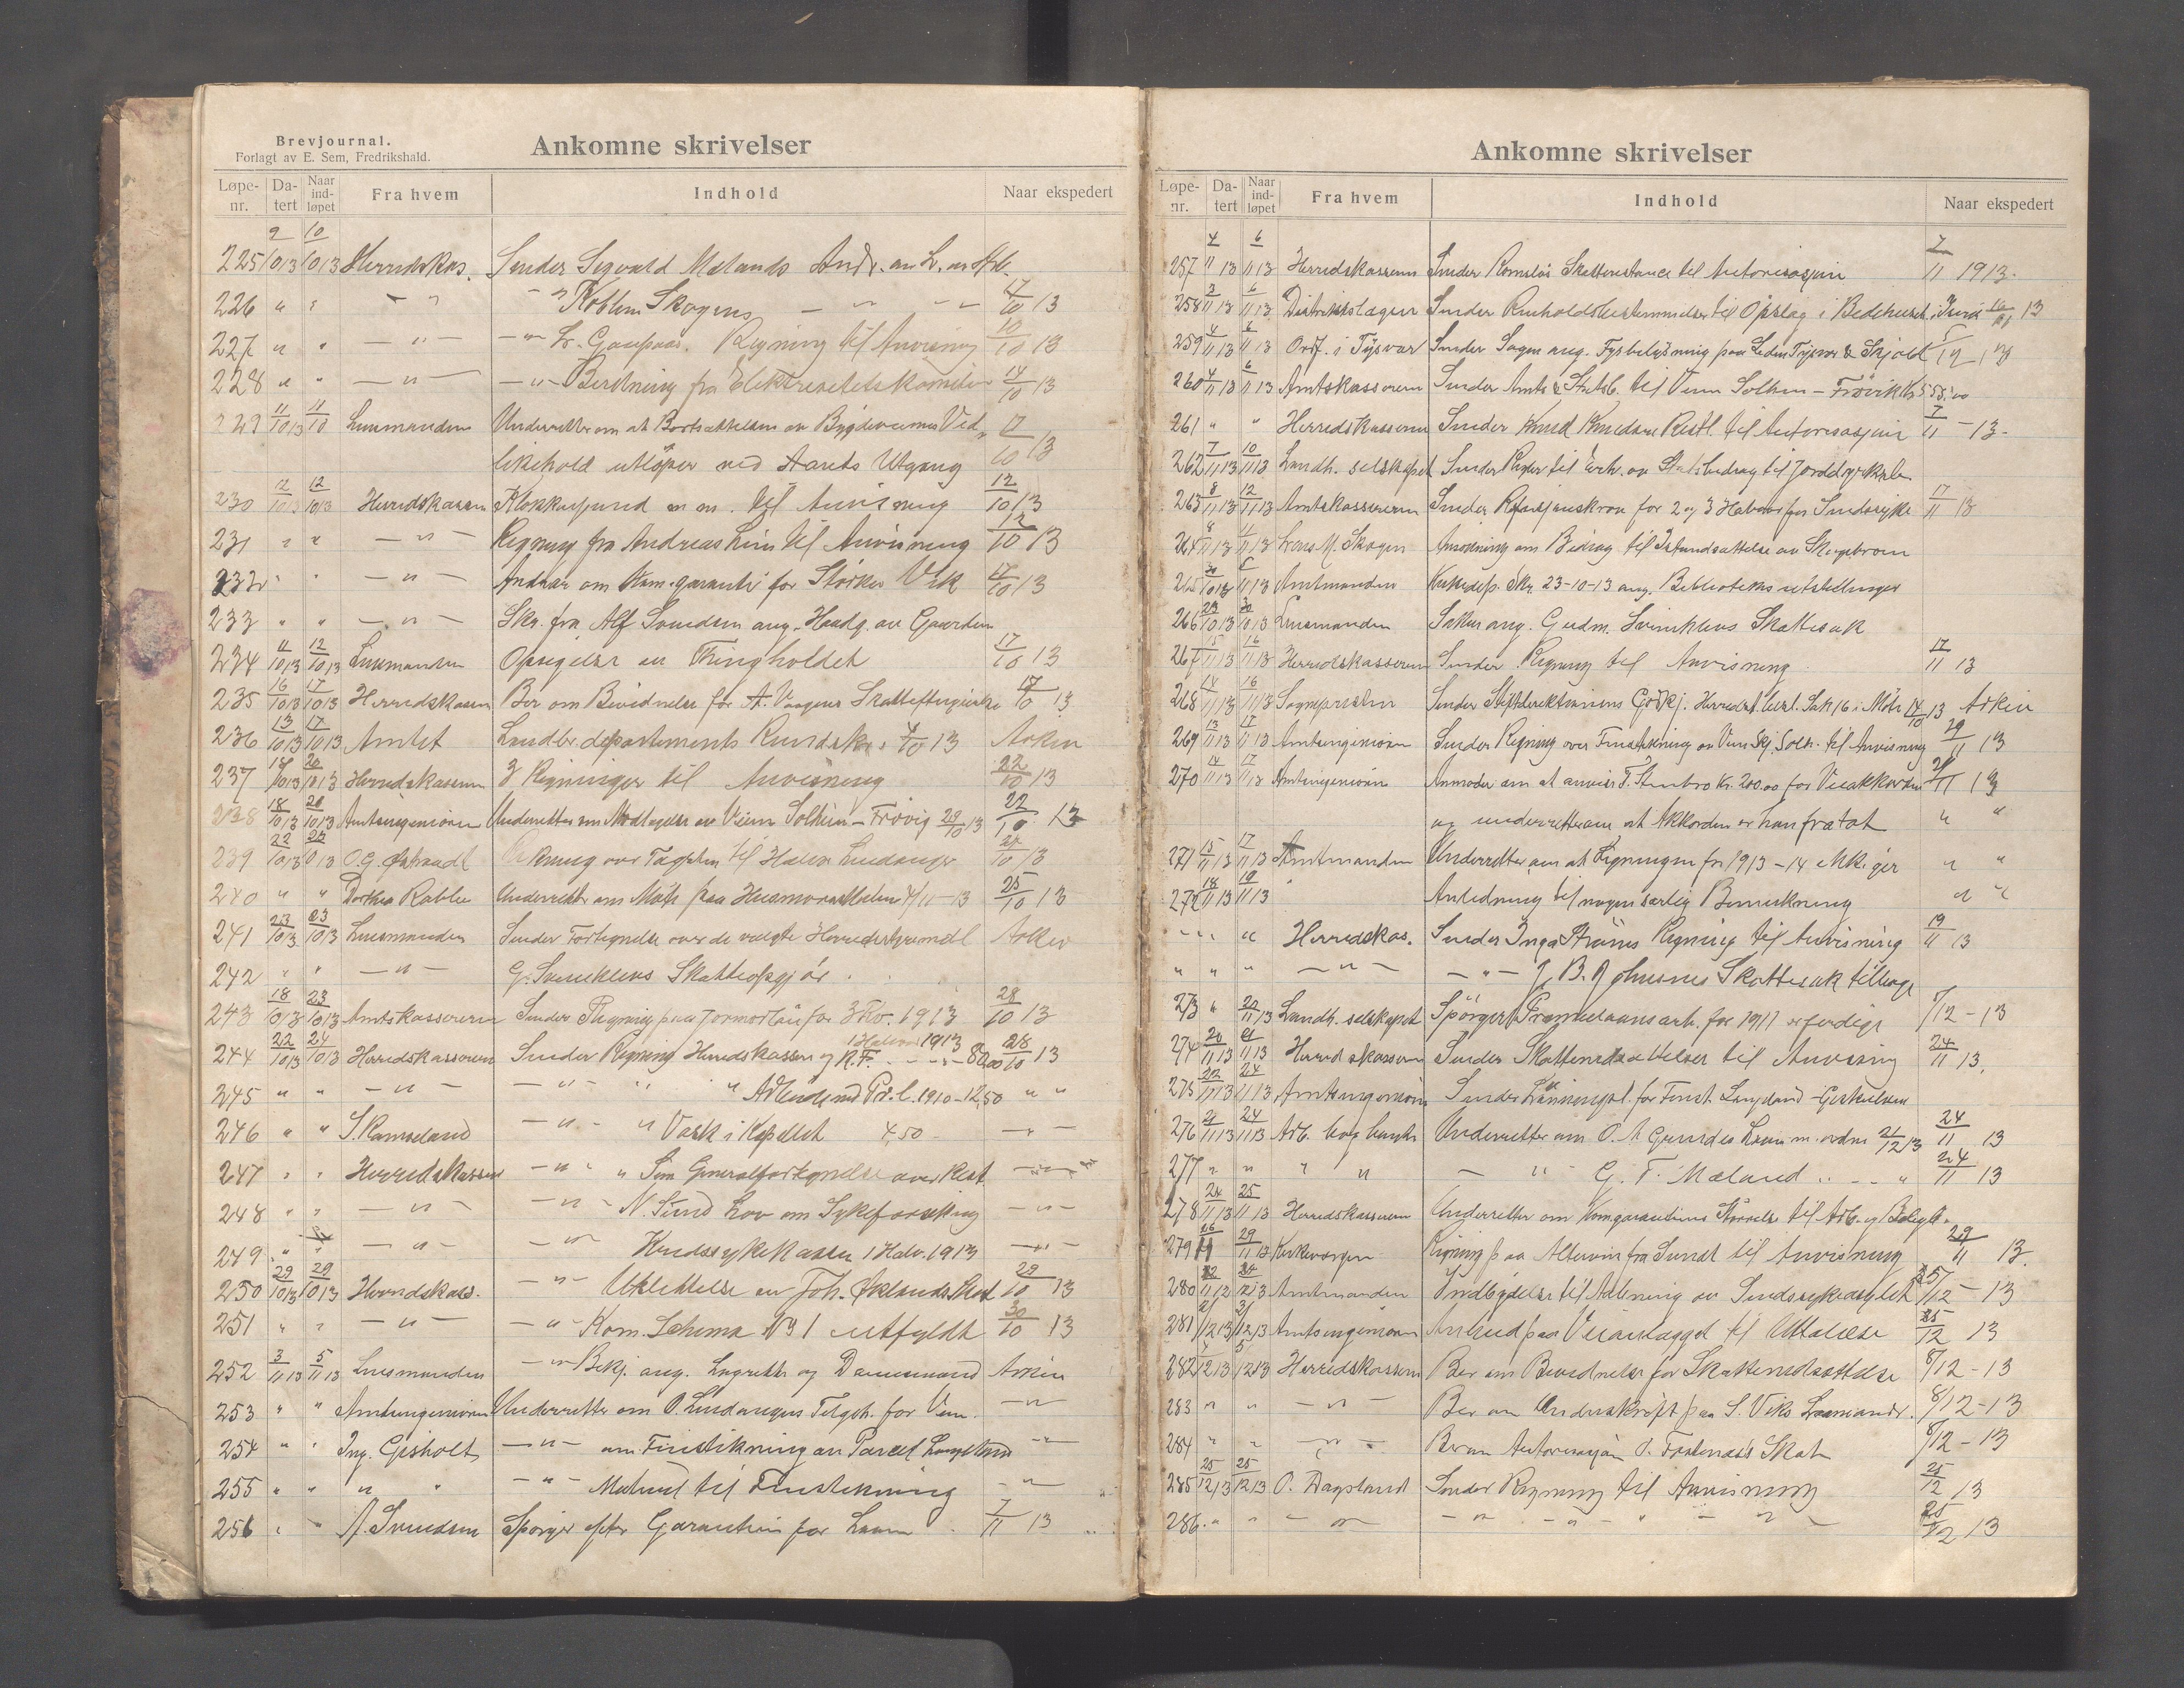 Brevjournal.
Forlagt av E. Sem, Fredrikshald.
Ankomne skrivelser
Løpe-nr. Da-tert Naar ind-løpet Fra hvem Indhold Naar ekspedert
225 9/10 13 10/10 13 Herredskas. Sender Sigvald Mælands Andr. om L. av
226 " " — " — " Skogens — " — 17/10 13
227 " " — " — — " — Regning til Anvisning 10/10 13
228 " " — " — — " — Beretning fra Elektrisitetskomiteen 14/10 13
229 11/10 13 11/10 Lensmanden Underretter om at Bortsættelsen av Bygdeveienes Ved- 17/10 13
likehold utløper ved Aarets Utgang
230 12/10 13 12/10 13 Herredskassen Klokkerfond m m. til Anvisning 12/10 13
231 " " — " — Regning fra Andreas til Anvisning 12/10 13
232 " " — " — Andraar om Kom.garanti for 17/10 13
233 " " — " — Skr. fra Alf Svendsen ang. av Gaarden
234 11/10 13 12/10 13 Lensmanden Opsigelse av Thingholdet 17/10 13
235 16/10 13 17/10 13 Herredskassen Ber om Bevidnelse for A. Vaagens Skatteftergivelse 17/10 13
236 13/10 13 17/10 13 Amtet Landbr.departements Rundskr. 4/10 13 Arkiv
237 18/10 13 20/10 13 Herredskassen 3 Regninger til Anvisning 22/10 13
238 18/10 13 20/10 13 Amtsingeniøren Underretter om Modtagelse av Veien Solheim – Frøvig 29/10 13 22/10 13
239 22/10 13 22/10 13 O. G. Østrandl Regning over til 22/10 13
240 " " Dorthea Underretter om Møte paa 4/11–13 25/10 13
241 23/10 13 23/10 13 Lensmanden Sender Fortegnelse over de valgte Herredstyremedl Arkiv
242 " " — " — G. Svineklevs Skatteopgjør
243 18/10 13 23/10 13 Amtskassereren Sender Regning paa for 3 Kv. 1913 28/10 13
244 22/10 13 24/10 13 Herredskassereren Sender Regning Herredskassen og R.F. 1 Halvaar 1913 - - - 80,00 28/10 13
245 " " — " — — " — " " 1910 – 12,50 " "
246 " " S. Ramseland — " — " Vask i Kapellet 4,50 — " —
247 " " Herredskassen — " — " Generalfortegnelse over Rest — " —
248 " " — " — — " — N. Sund Lov om Sykeforsikring — " —
249 " " — " — — " — Kredssykekassen 1 Halv. 1913 — " —
250 29/10 13 29/10 13 Herredskass. — " — Utslettelse av Joh. Øklands Skat 29/10 13
251 " " — " — — " — Kom. Schema No 1 utfyldt 30/10 13
252 3/11 13 5/11 13 Lensmanden — " — Bekj. ang. Lagrette og Domsmænd Arkiv
253 " " Amtsingeniøren Underretter om O. Lindangers for Vei. — " —
254 " " Ing. Gisholt — " — om Finstikning av Parcel Langeland — " —
255 " " " " — " — til Finstikning — " —
256 " " A. Svendsen Spørger efter Garantien for Laan 7/11 13
Ankomne skrivelser
Løpe-nr. Da-tert Naar ind-løpet Fra hvem Indhold Naar ekspedert
257 4/11 13 6/11 13 Herredskasseren Sender Skatterestance til Autorisasjon 7/11 1913.
258 3/11 13 6/11 13 Distriktslægen Sender Renholdsbestemmelser til Opslag i Bedehuset i 13
259 4/11 13 6/11 13 Ordf. i Tysvær Sender Sagen ang. Fyrbelysning paa Leden Tysvær & Skjold 5/12 – 13
260 4/11 13 6/11 13 Amtskassereren Sender Amts & Statsb. til Veien Solheim – Frøvik
261 " " Herredskasseren Sender Knud Restl. til Autorisasjon 7/11 – 13.
262 7/11 13 10/11 13 Landh. selskapet Sender Regler til Erh. av Statsbidrag til Jorddyrkn.
263 8/11 13 12/11 13 Amtskassereren Sender Refusjonskrav for 2 og 3 Halvaar for Sindssyke 17/11 13
264 8/11 13 11/11 13 Lars M. Skogen Anmodning om Bidrag til Istandsættelse av
265 30/10 13 5/11 13 Amtmanden Kirkedep. Skr. 23–10–13 ang. Biblioteksutstillinger
266 29/10 13 30/10 13 Lensmanden Saken ang. Gudm. Svineklevs Skattesak
267 15/11 13 16/11 13 Herredskasseren Sender Regning til Anvisning 17/11 13
268 14/11 13 16/11 13 Sogneprsten Sender Stiftsdirektionens Godkj. Herredst. besl. Sak 16 i Møte 14/10 13 Arkiv
269 13/11 13 17/11 13 Amtsingeniøren Sender Regning over Finstikning av Veien Skj. Solh. til Anvisning 29/11 13
270 14/11 13 17/11 13 Amtsingeniøren Anmoder om at anvise T. Stenbro Kr. 200.00 for Veiakkorden 21/11 13
og underretter om at Akkorden er han fratat " "
271 15/11 13 17/11 13 Amtmanden Underretter om at Ligningen for 1913 – 14 ikke gir " "
272 18/11 13 19/11 13 " Anledning til nogen særlig Bemerkning " "
" " " Herredskas. Sender Inga Regning til Anvisning 19/11 13
" " " — " — — " — J. B. Johnsens Skattesak tilbage
273 " 20/11 13 Landh. selskapet Spørger for 1911 er færdige 5/12 – 13
274 20/11 13 21/11 13 Herredskasseren Sender Skattenedsættelser til Anvisning 24/11 13.
275 22/11 13 24/11 13 Amtsingeniøren Sender Lønningsl. for Finst. Langeland –
276 21/11 13 24/11 13 Arb. bog banks Underretter om O. A. Grindes Laan m. ordn 21/12 13 24/11 13
277 " " " " — " — G. T. Mæland " – – " 24/11 13
278 24/11 13 25/11 13 Herredskasseren Underretter om Komgarantiens Størrelse til Arb. og Boligb.
279 26/11 29/11 13 Kirkevergen Regning paa Altervin fra Sundt til Anvisning 29/11 13.
280 22/11 12 13 Amtmanden Indbydelse til Aabning av Sindssykeasylet 5/12 – 13
281 2/12 13 3/12 13 Amtsingeniøren Anbud paa Veianlægget til Uttalelse 25/12 13
282 12 13 5/12 13 Herredskasseren Ber om Bevidnelse for Skattenedsættelse 8/12 – 13
283 " " — " — Ber om Underskrift paa S. Viks Laaneandr. 8/12 – 13
284 " " — " — Ber om Autorisasjon O. Skat 8/12 – 13
285 25/12 13 25/12 13 O. Dagsland Sender Regning til Anvisning 25/12 13
286 " " — " — — " — — " — " — " — 25/12 13